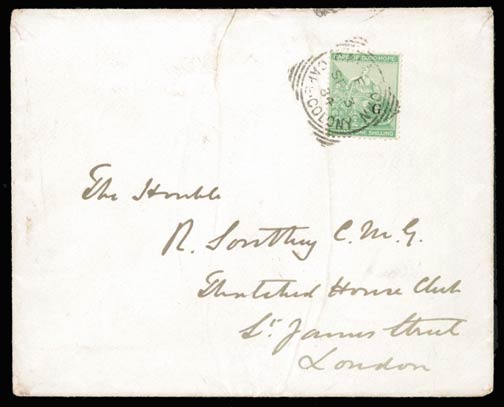 CAPE OF GOOD HOPE
G
ONE SHILLING
CAPE COLONY
The Honble
R. Southey C.M.G.
Thatched House Club
St. James Street
London